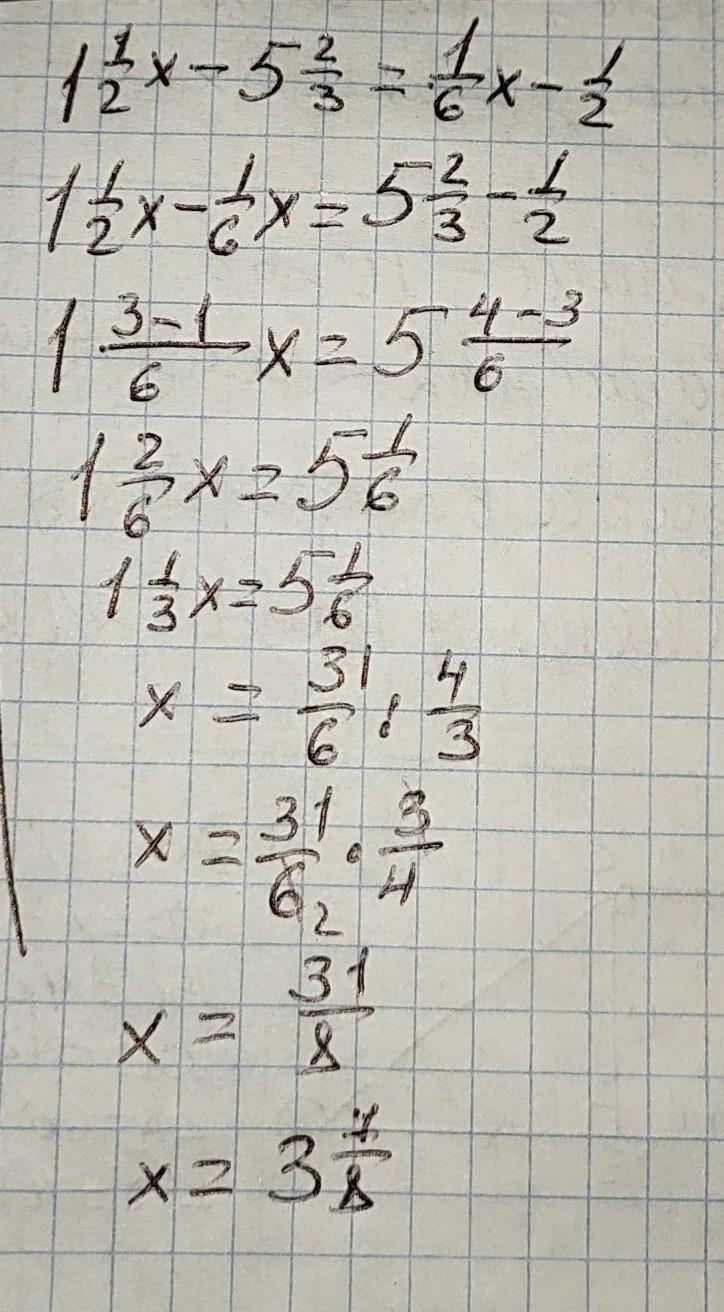 1 1/2 x - 5 2/3 = 1/6 x - 1/2
1 1/2 x - 1/6 x = 5 2/3 - 1/2
1 (3-1)/6 x = 5 (4-3)/6
1 2/6 x = 5 1/6
1 1/3 x = 5 1/6
x = 31/6 : 4/3
x = 31/6 2 · 3/4
x = 31/8
x = 3 7/8